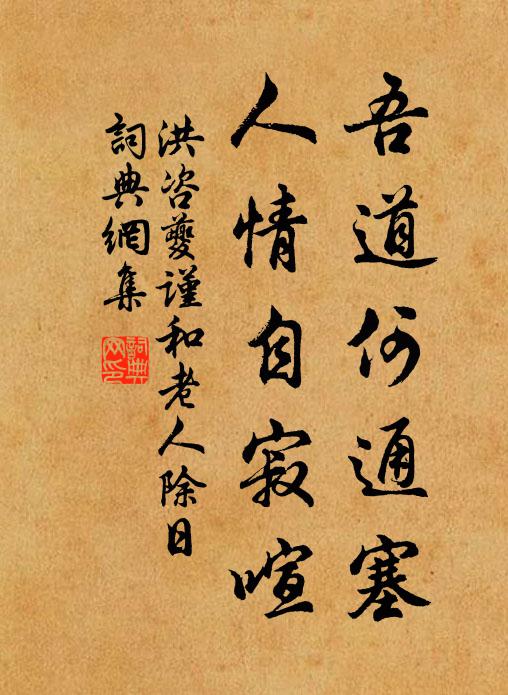 吾道何通塞
人情自寂喧
洪咨夔謹和老人除日
詞典網集
詞典
网印